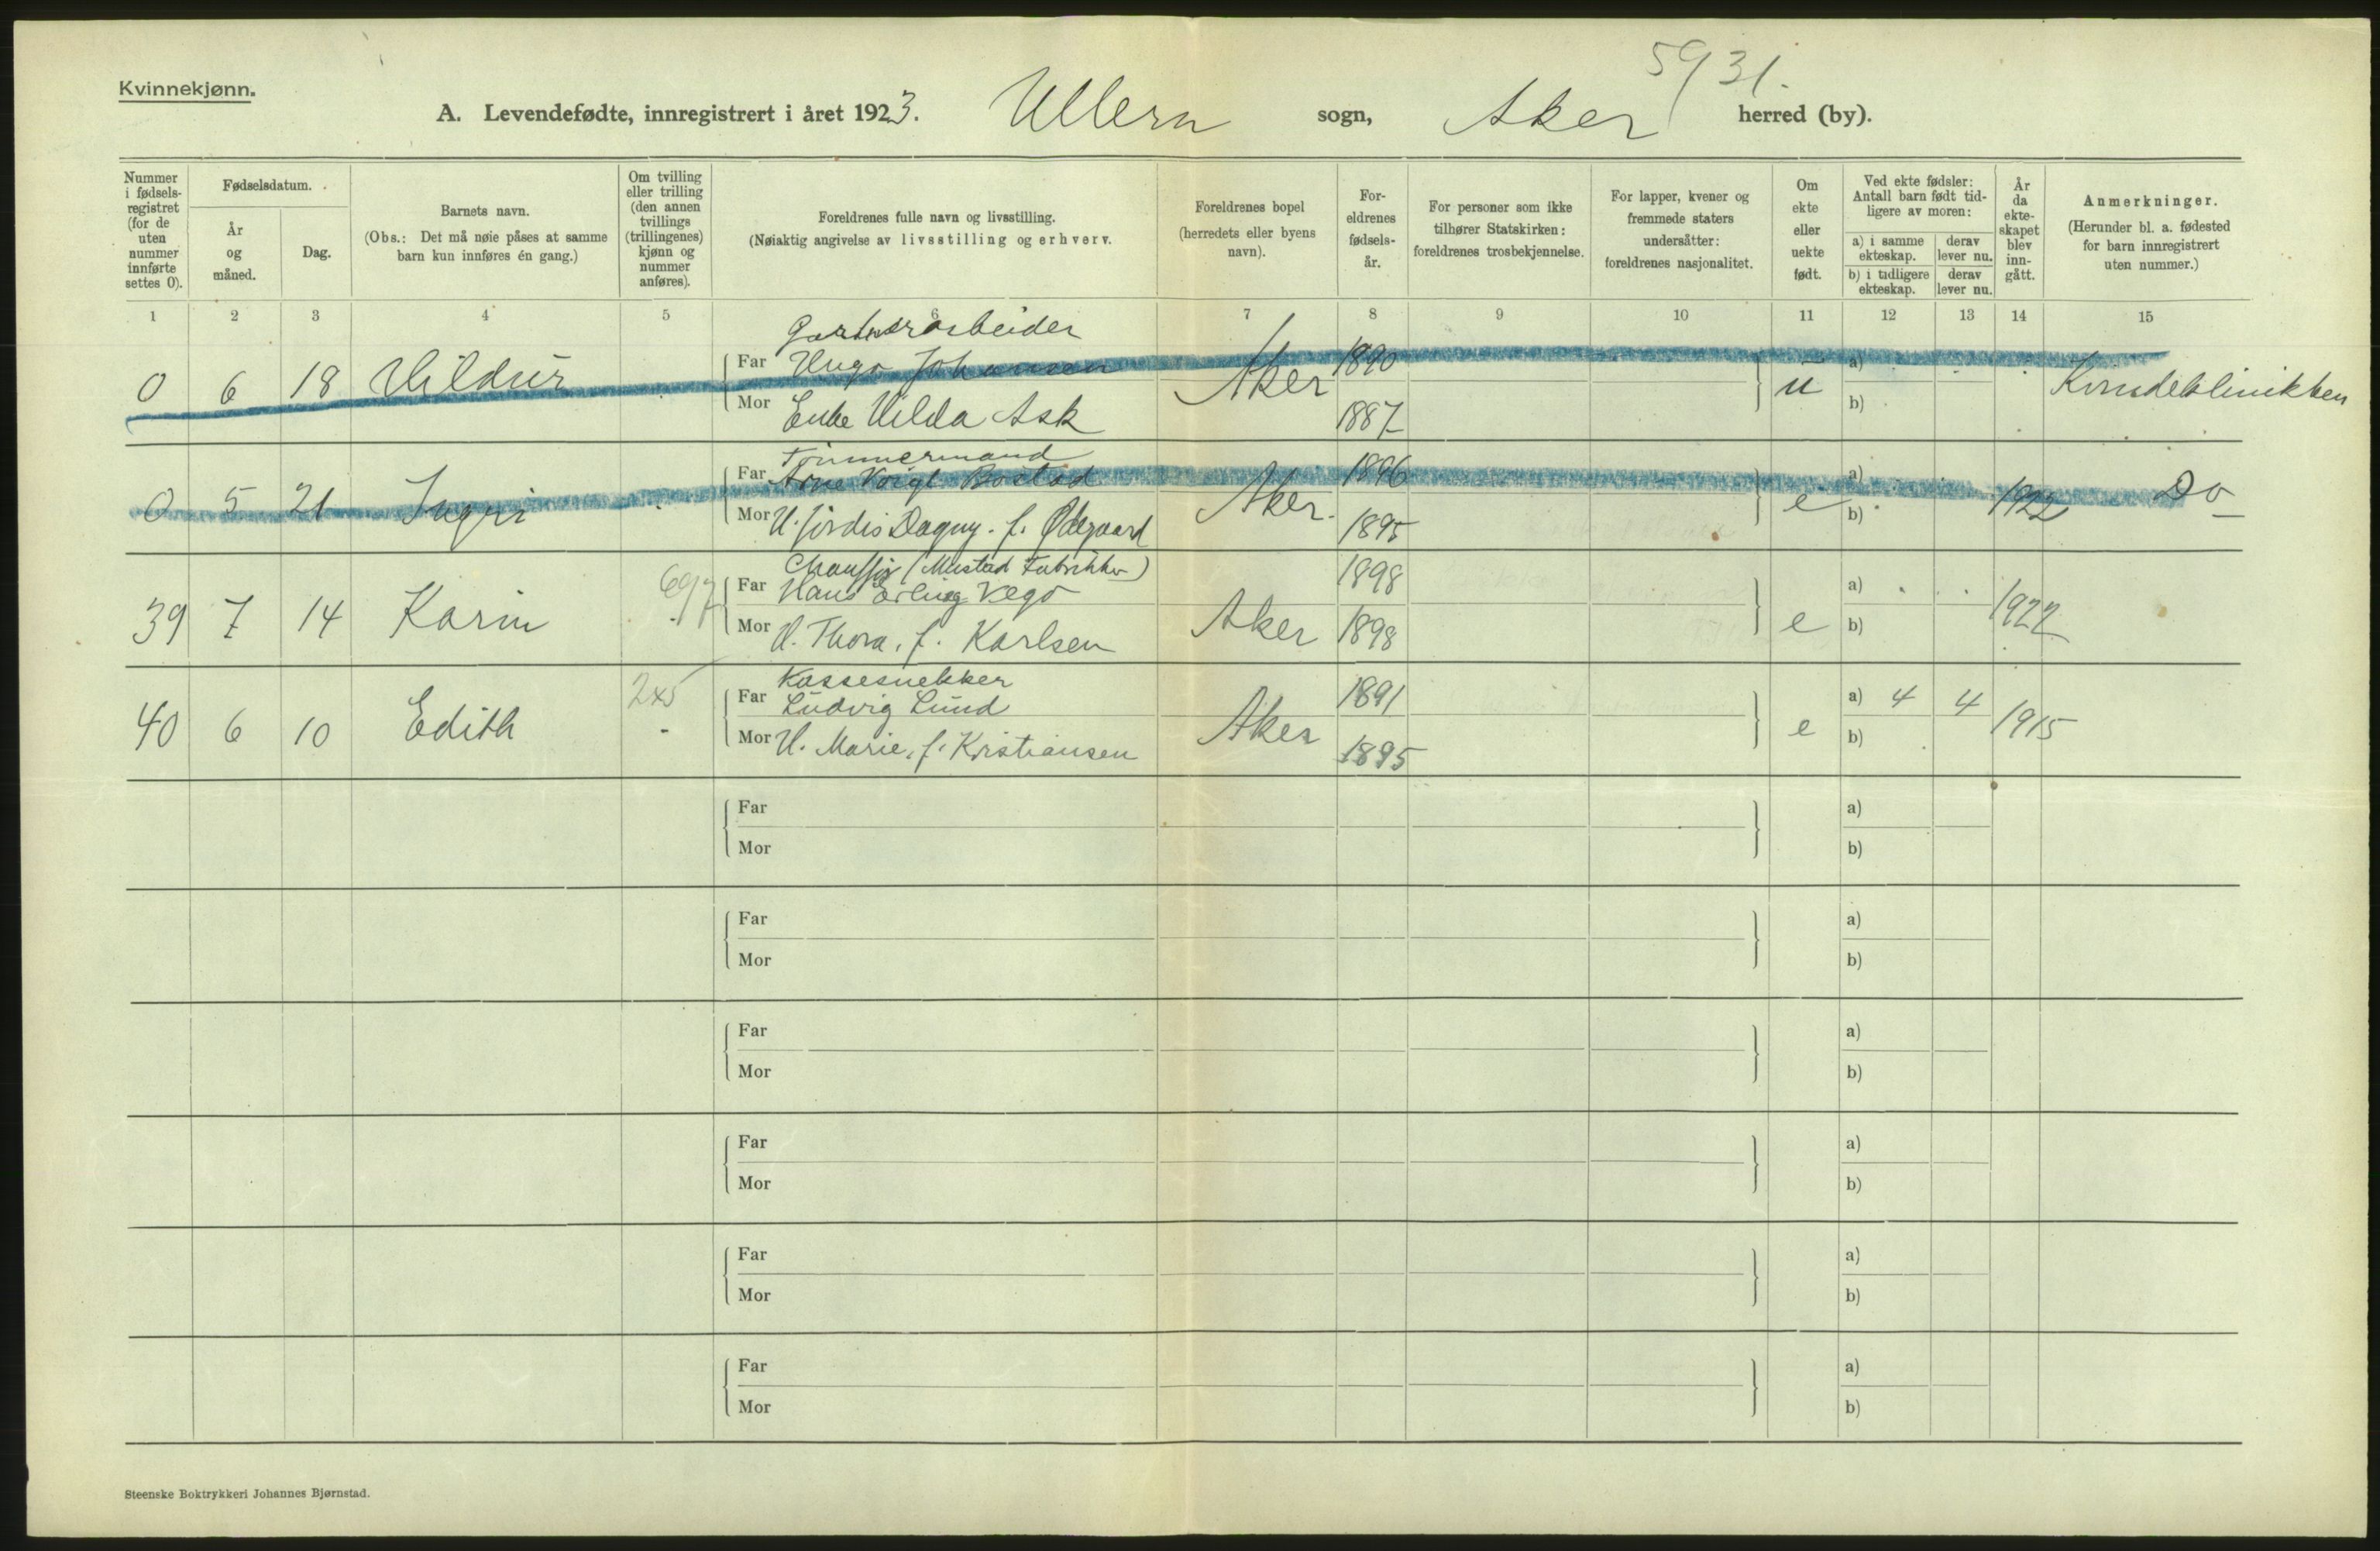 Kvinnekjønn.
5931.
A. Levendefødte, innregistrert i året 1923. Ullern sogn, Aker herred (by).
Nummer i fødsels-registret (for de uten nummer innførte settes 0).
Fødselsdatum.
År og måned.
Dag.
Barnets navn.
(Obs.: Det må nøie påses at samme barn kun innføres én gang.)
Om tvilling eller trilling (den annen tvillings (trillingenes) kjønn og nummer anføres).
Foreldrenes fulle navn og livsstilling.
(Nøiaktig angivelse av livsstilling og erhverv.
Foreldrenes bopel (herredets eller byens navn).
For-eldrenes fødsels-år.
For personer som ikke tilhører Statskirken: foreldrenes trosbekjennelse.
For lapper, kvener og fremmede staters undersåtter: foreldrenes nasjonalitet.
Om ekte eller uekte født.
Ved ekte fødsler: Antall barn født tid-ligere av moren:
a) i samme ekteskap.
derav lever nu.
b) i tidligere ekteskap.
derav lever nu.
År da ekte-skapet blev inn-gått.
Anmerkninger.
(Herunder bl. a. fødested for barn innregistrert uten nummer.)
1 2 3 4 5 6 7 8 9 10 11 12 13 14 15
Gartnerarbeider
0 6 18 Hildur Far Hugo Johansen Aker 1890 u a) Kvindeklinikken
Mor Enke Hilda Ask 1887 b)
Tømmermand
0 5 21 Ingri Far Arne Voigt Bostad Aker. 1896 e a) 1922 Do
Mor H. Jordis Dagny. f. Ødegaard 1895 b)
Chauffør (Mustad Fabrikker)
39 7 14 Karin 697 Far Hans Erling Vego Aker 1898 e a) 1922
Mor H. Thora, f. Karlsen 1898 b)
Kassesnekker
40 6 10 Edith 245 Far Ludvig Lund Aker 1891 e a) 4 4 1915
Mor H. Marie, f. Kristiansen 1895 b)
Far a)
Mor b)
Far a)
Mor b)
Far a)
Mor b)
Far a)
Mor b)
Far a)
Mor b)
Far a)
Mor b)
Steenske Boktrykkeri Johannes Bjørnstad.